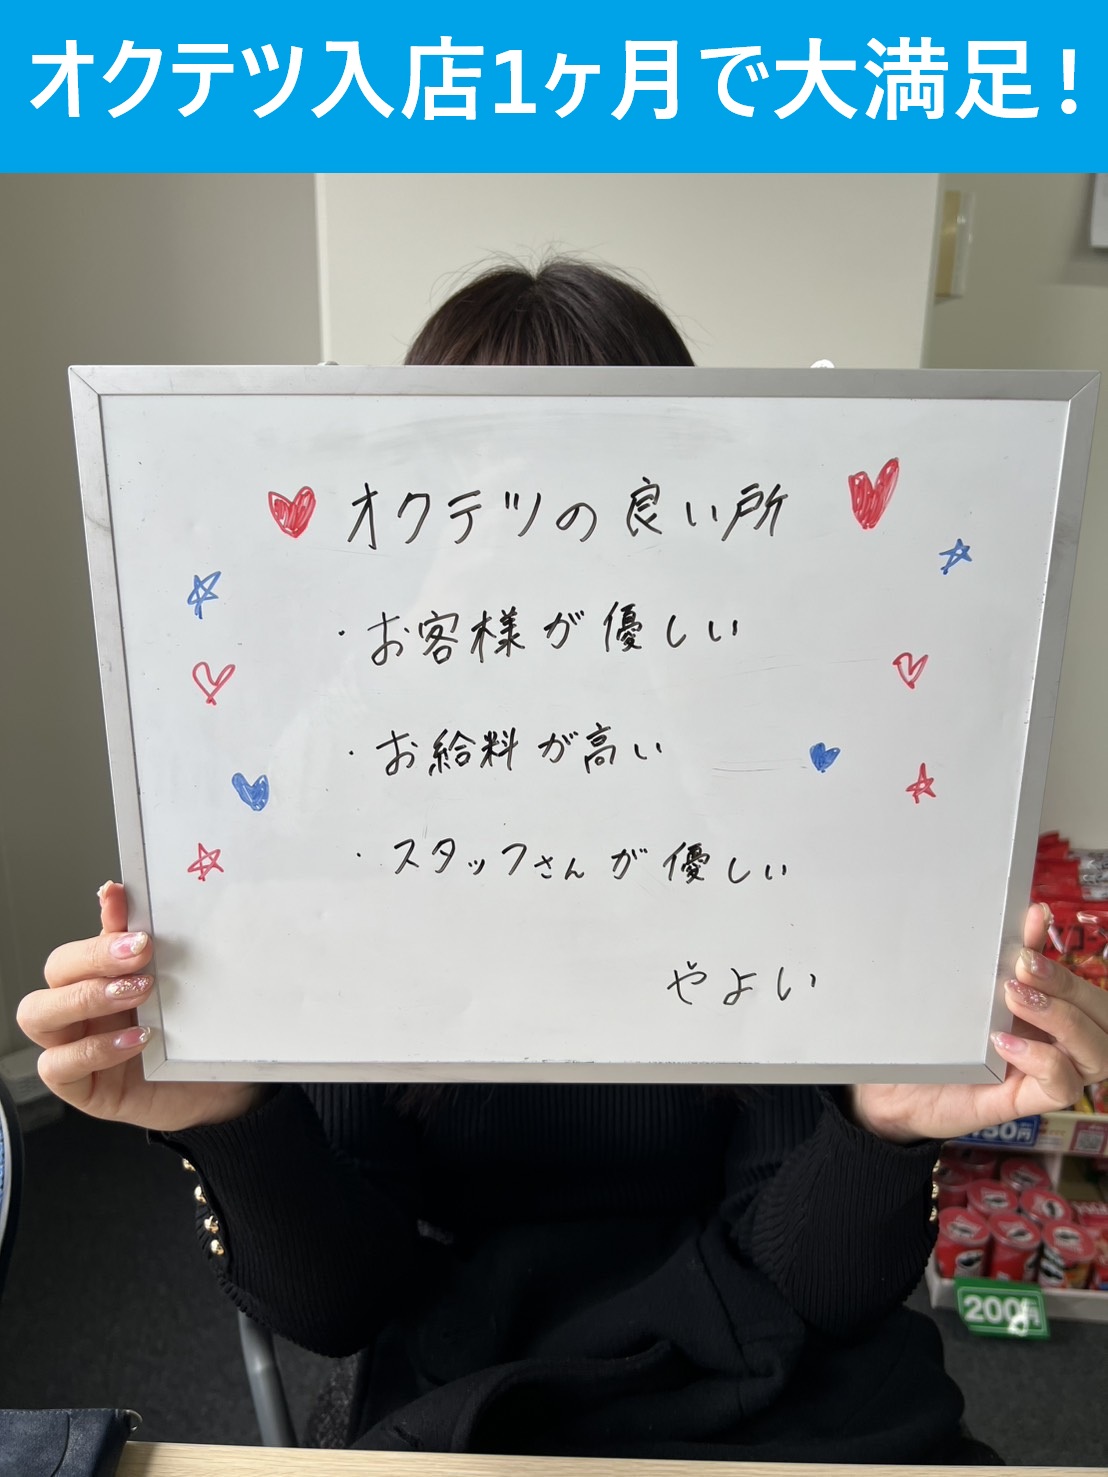 オクテツ入店1ヶ月で大満足！
オクテツの良い所
・お客様が優しい
・お給料が高い
・スタッフさんが優しい
やよい
150円
200円